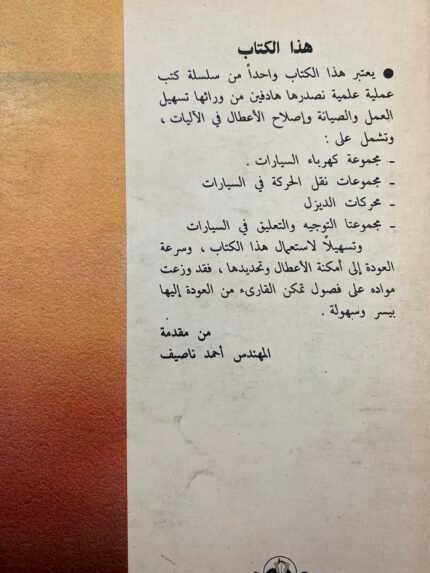 هذا الكتاب
● يعتبر هذا الكتاب واحداً من سلسلة كتب
عملية علمية نصدرها هادفين من ورائها تسهيل
العمل والصيانة وإصلاح الأعطال في الآليات ،
وتشمل على :
ـ مجموعة كهرباء السيارات .
ـ مجموعات نقل الحركة في السيارات
ـ محركات الديزل
ـ مجموعتا التوجيه والتعليق في السيارات
وتسهيلاً لاستعمال هذا الكتاب ، وسرعة
العودة إلى أمكنة الأعطال وتحديدها ، فقد وزعت
مواده على فصول تمكن القارىء من العودة إليها
بيسر وسهولة .
من مقدمة
المهندس أحمد ناصيف